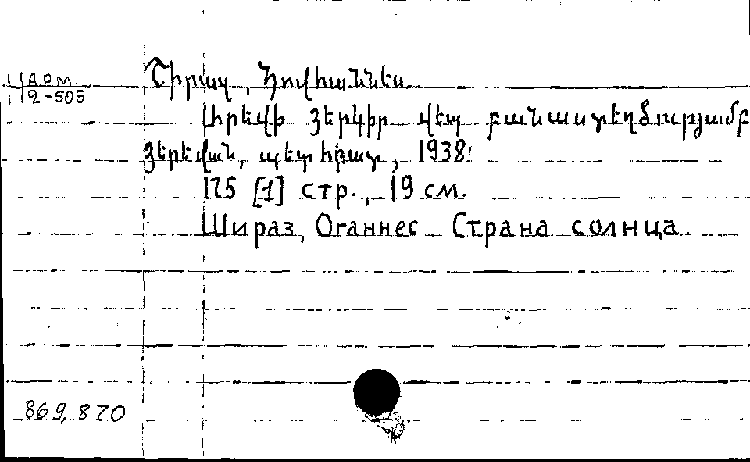 Арм
2-505
Շիրազ, Հովհաննես
Արևի յերկիր վեպ բանաստեղծությամբ
Յերեվան, պետհրատ, 1938
175 [1] стр., 19 см.
Шираз, Оганнес Страна солнца
869,870